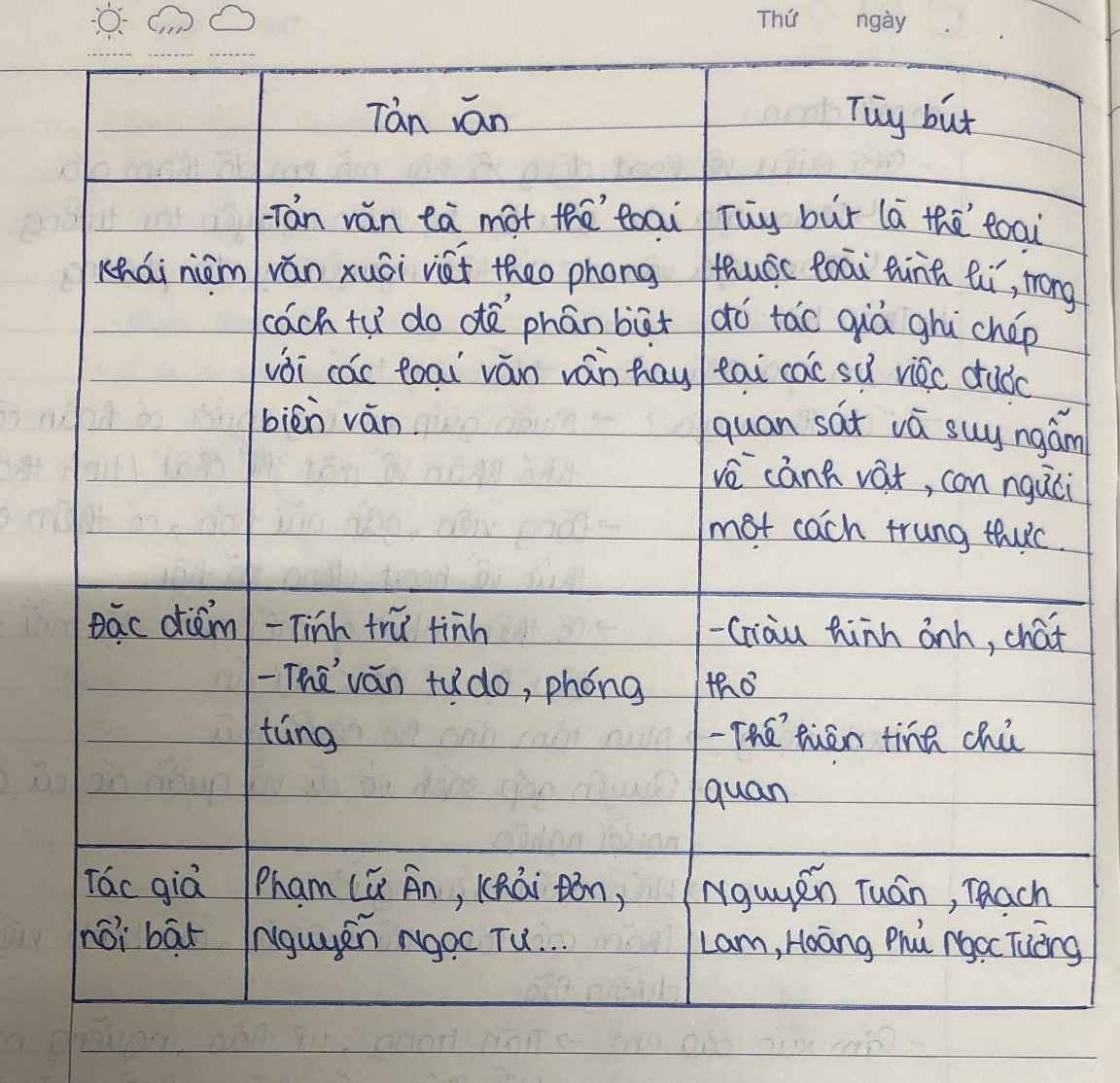 Thứ ngày
Tản văn
Tùy bút
Khái niệm
-Tản văn là một thể loại
văn xuôi viết theo phong
cách tự do để phân biệt
với các loại văn vần hay
biền văn.
Tùy bút là thể loại
thuộc loại hình kí, trong
đó tác giả ghi chép
lại các sự việc được
quan sát và suy ngẫm
về cảnh vật, con người
một cách trung thực.
Đặc điểm
-Tính trữ tình
-Thể văn tự do, phóng
túng
-Giàu hình ảnh, chất
thơ
-Thể hiện tính chủ
quan
Tác giả
nổi bật
Phạm Lữ Ân, Khải Đơn,
Nguyễn Ngọc Tư...
Nguyễn Tuân, Thạch
Lam, Hoàng Phủ Ngọc Tường